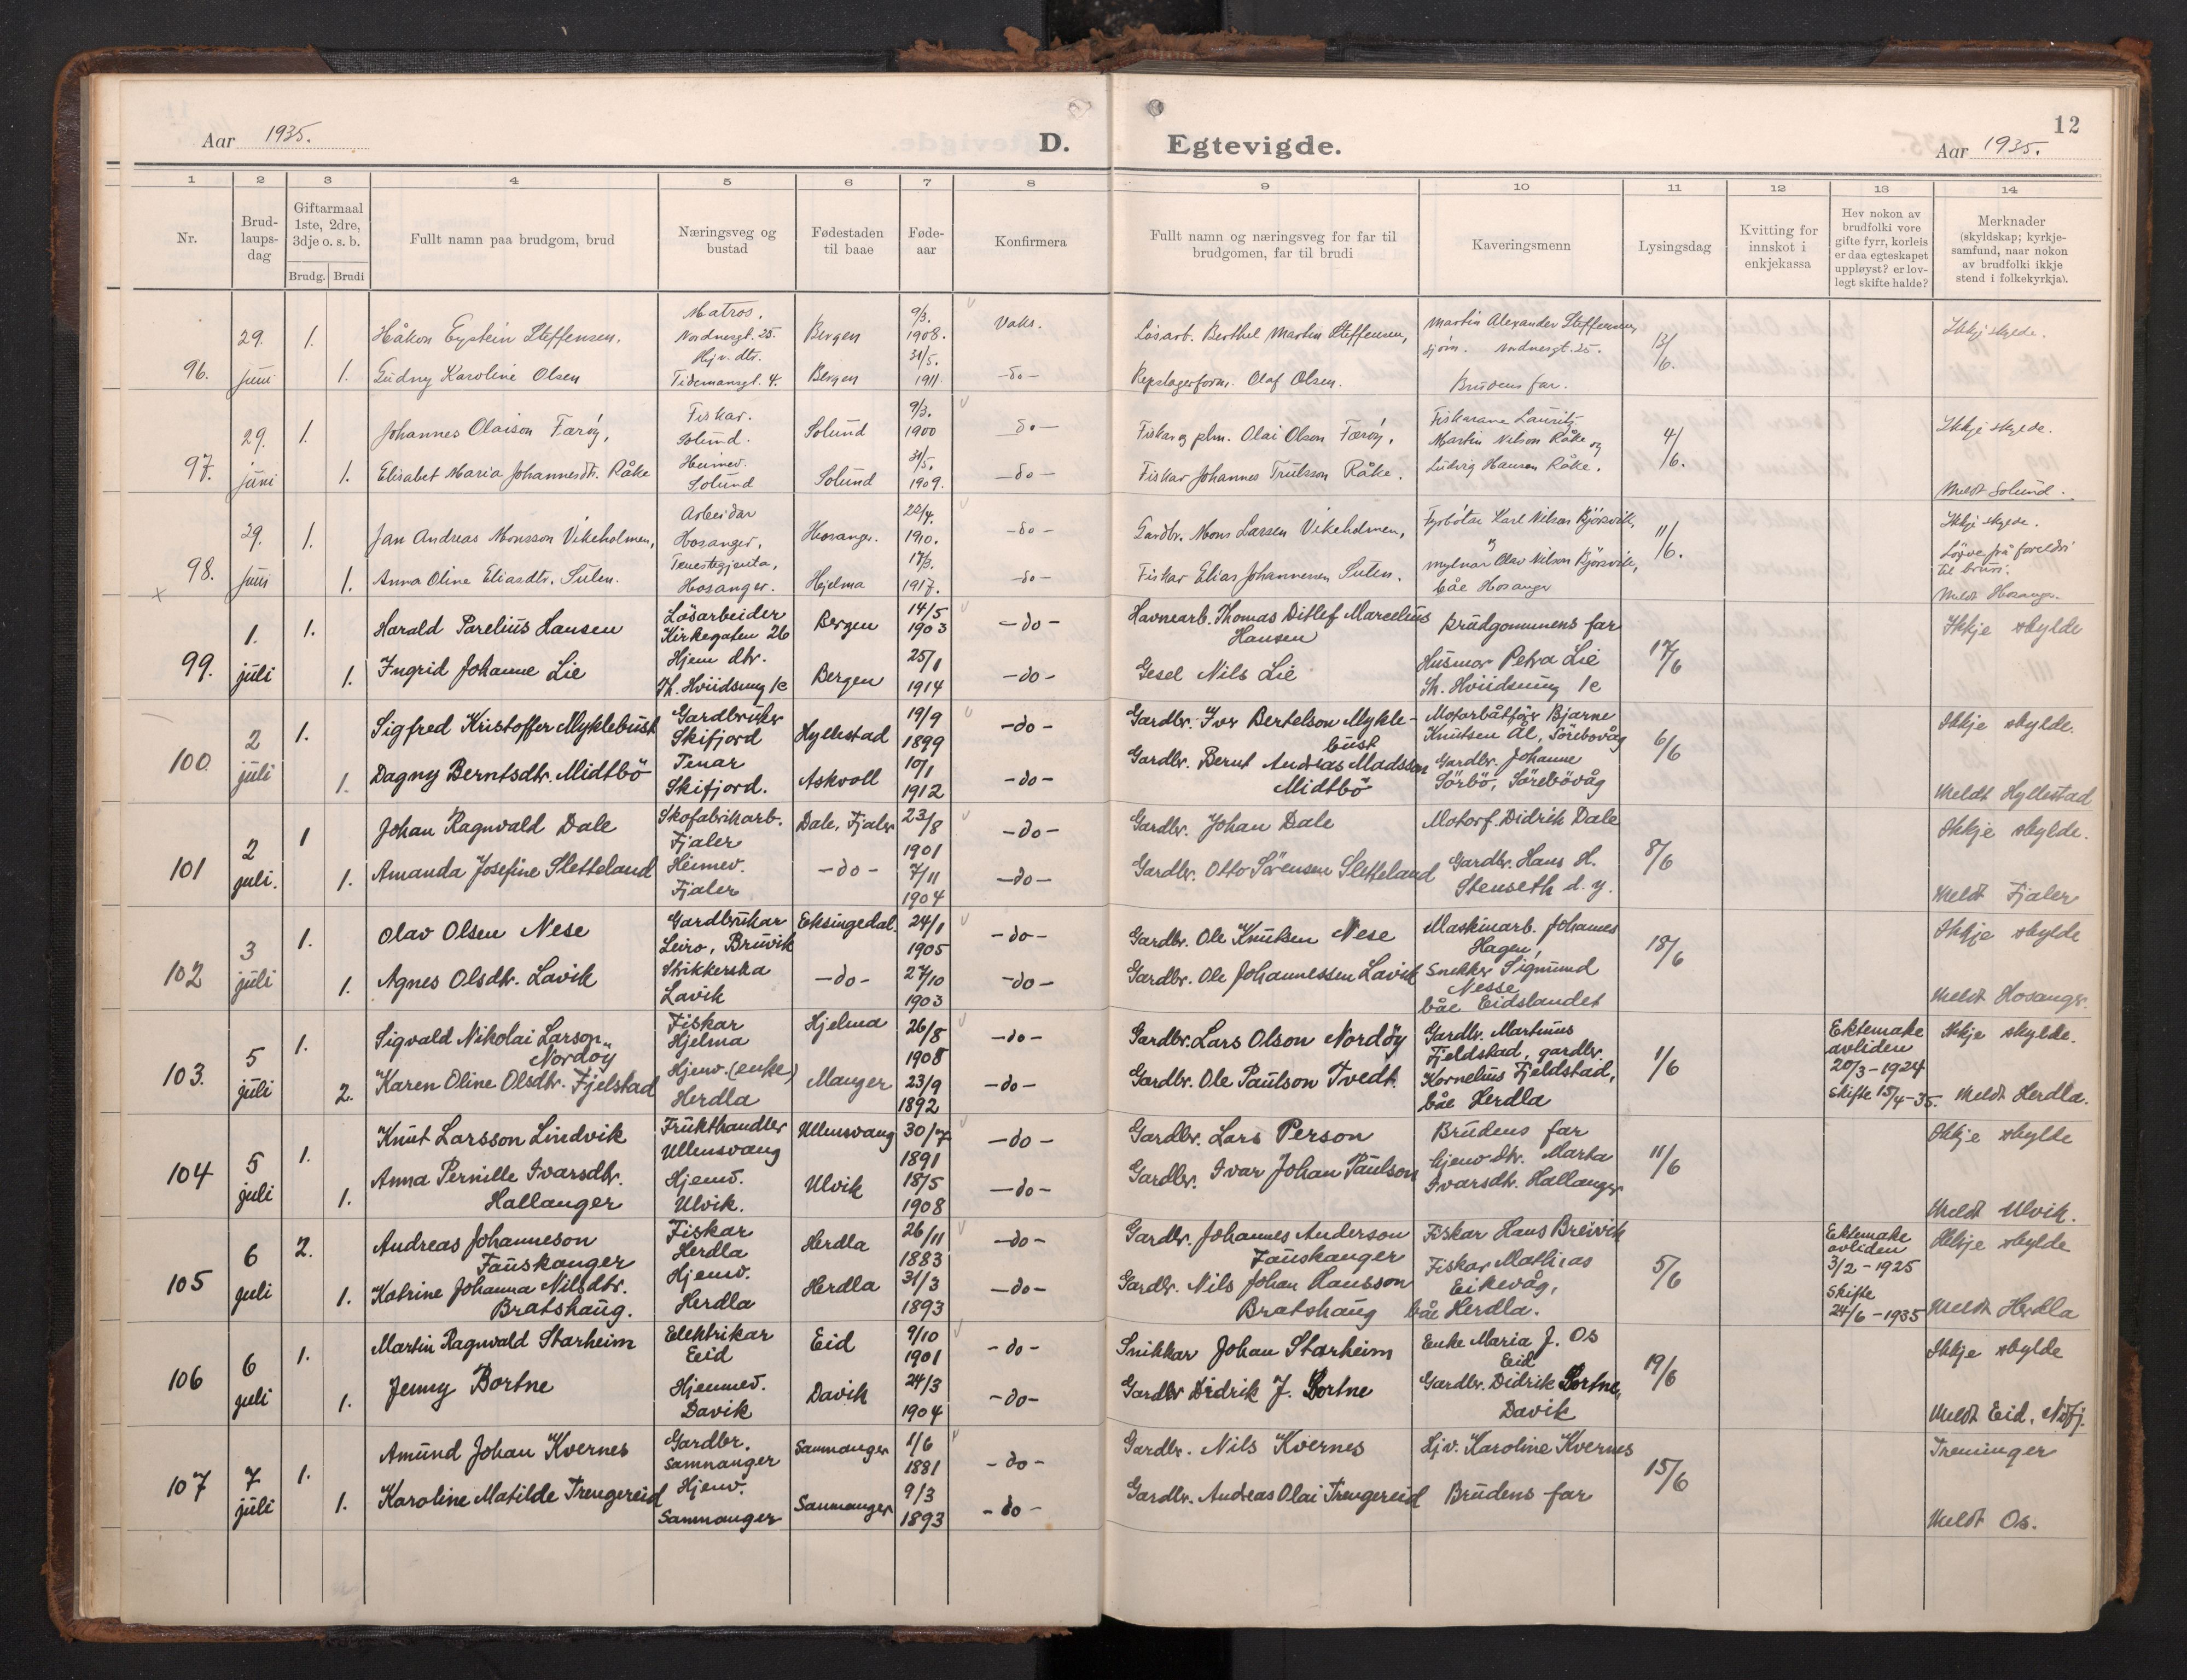 Aar 1935.
D. Egtevigde.
12
Aar 1935.
1 2 3 4 5 6 7 8 9 10 11 12 13 14
Nr.
Brud-
laups-
dag
Giftarmaal
1ste, 2dre,
3dje o. s. b.
Brudg. Brudi
Fullt namn paa brudgom, brud
Næringsveg og
bustad
Fødestaden
til baae
Føde-
aar
Konfirmera
Fullt namn og næringsveg for far til
brudgomen, far til brudi
Kaveringsmenn
Lysingsdag
Kvitting for
innskot i
enkjekassa
Hev nokon av
brudfolki vore
gifte fyrr, korleis
er daa egteskapet
uppløyst? er lov-
legt skifte halde?
Merknader
(skyldskap; kyrkje-
samfund, naar nokon
av brudfolki ikkje
stend i folkekyrkja).
96.
29.
juni
1.
Håkon Eystein Steffensen.
Matros.
Nordnesgt. 25.
Bergen
9/3.
1908.
Vaks.
Lösarb. Berthel Martin Steffensen,
Martin Alexander Steffensen,
sjöm. Nordnesgt. 25.
13/6.
Ikkj skylde.
1.
Gudny Karoline Olsen
Hjv. dtr.
Tidemansgt. 4.
Bergen
31/5.
1911.
-do-
Repslagerform. Olaf Olsen.
Brudens far.
97.
29.
juni
1.
Johannes Olaison Færöy,
Fiskar.
Solund.
Solund
9/3.
1900
-do-
Fiskar og plm. Olai Olson Færöy,
Fiskarane Lauritz
Martin Nilson Råke og
Ludvig Hansen Råke.
4/6.
Ikkje skylde.
1.
Elisabet Maria Johannesdt. Råke
Heimev.
Solund
Solund
31/5.
1909.
-do-
Fiskar Johannes Trulsson Råke.
Meldt Solund.
98.
x
29.
juni
1.
Jan Andreas Monsson Vikeholmen,
Arbeidar
Hosanger,
Hosangr.
22/4.
1910.
-do-
Gardbr. Mons Larssen Vikeholmen,
Fyrbötar Karl Nilsen Björsvik,
og
mylnar Olav Nilson Björsvik,
båe Hosangr
11/6.
Ikkje skylde.
Löyve frå foreldri
til bruri.
Meldt Hosangr.
1.
Anna Oline Eliasdtr. Sulen.
Tenestegjenta,
Hosanger.
Hjelma
17/3.
1917.
-do-
Fiskar Elias Johannessen Sulen.
99.
1.
juli
1.
Harald Parelius Hansen
Lösarbeider
Kirkegaten 26
Bergen
14/5
1903
-do-
Havnearb. Thomas Ditlef Marcelius
Hansen
Brudgommens far
17/6
Ikkje skylde
1.
Ingrid Johanne Lie
Hjem dtr.
Th. Hviidsmug 1c
Bergen
25/1
1914
-do-
Gesel Nils Lie
Husmor Petra Lie
Th. Hviidsmug 1c
100.
2
juli
1.
Sigfred Kristoffer Myklebust
Gardbruker
Skifjord
Hyllestad
19/9
1899
-do-
Gardbr. Ivr Bertelson Mykle-
bust
Motorbåtför Bjarne
Knutsen Ål, Sörebovåg
6/6
Ikkje skylde.
1.
Dagny Berntsdtr. Midtbö
Tenar
Skifjord.
Askvoll
10/1
1912
-do-
Gardbr. Bernt Andreas Madsson
Midtbö
Gardbr. Johanne
Sörbö, Sörebövåg
Meldt Hyllestad
101
2
juli.
1
Johan Ragnvald Dale
Skofabrikarb.
Fjaler
Dale, Fjaler
23/8
1901
-do-
Gardbr. Johan Dale
Motorf. Didrik Dale
8/6
Ikkje skylde.
1.
Amanda Josefine Sletteland
Heimev.
Fjaler
-do-
7/11
1904
-do-
Gardbr. Otto Sörensen Sletteland
Gardbr. Hans H.
Stenseth d. y.
Meldt Fjaler
102
3
juli
1.
Olav Olsen Nese
Gardbrukar
Leiro, Bruvik
Eksingedal
24/1
1905
-do-
Gardbr. Ole Knutsen Nese
Maskinarb. Johannes
Hagen,
18/6
Ikkje skylde
1.
Agnes Olsdtr. Lavik
Strikkerska
Lavik
-do-
27/10
1903
-do-
Gardbr. Ole Johannessen Lavik
Snekker Sigmund
Nesse
båe Eidslandet
Meldt Hosangr.
103.
5
juli
1.
Sigvald Nikolai Larson
Nordöy
Fiskar
Hjelma
Hjelma
26/8
1908
-do-
Gardbr. Lars Olson Nordöy
Gardbr. Martinus
Fjeldstad, gardbr.
Kornelius Fjeldstad,
båe Herdla
1/6
Ektemake
avliden
20/3-1924
Skifte 15/4-35.
Ikkje skylde.
2.
Karen Oline Olsdtr. Fjelstad
Hjemv. (enke)
Herdla
Manger
23/9
1892
-do-
Gardbr. Ole Paulson Tvedt
Meldt Herdla.
104
5
juli
1.
Knut Larsson Lindvik
Frukthandler
Ullensvang
Ullensvang
30/7
1891
-do-
Gardbr. Lars Person
Brudens far
11/6
Ikkje skylde
1.
Anna Pernille Ivarsdtr.
Hallanger
Hjemv.
Ulvik.
Ulvik
18/5
1908
-do-
Gardbr. Ivar Johan Paulson
hjemv dtr. Marta
Ivarsdtr. Hallanger
Meldt Ulvik.
105
6
juli
2.
Andreas Johanneson
Fauskanger
Fiskar
Herdla
Herdla
26/11
1883
-do-
Gardbr. Johannes Anderson
Fauskanger
Fiskar Hans Breivik
5/6
Ektemake
avliden
3/2-1925
Skifte
24/6-1935
Ikkje skylde
1.
Katrine Johanna Nilsdtr.
Bratshaug.
Hjemv.
Herdla
Herdla
31/3
1893
-do-
Gardbr. Nils Johan Hansson
Bratshaug
Fiskar Mathias
Eikevåg,
båe Herdla.
Meldt Herdla
106
6
juli
1.
Martin Ragnvald Starheim
Elektrikar
Eid
Eid
9/10
1901
-do-
Snikkar Johan Starheim
Enke Maria J. Os
Eid
19/6
Ikkje skylde
1.
Jenny Bortne
Hjemmev.
Davik
Davik
24/3
1904
-do-
Gardbr Didrik J. Bortne
Gardbr. Didrik Bortne,
Davik
Meldt Eid, Nofj.
107
7
juli
1.
Amund Johan Kvernes
Gardbr.
Samnanger
Samnanger
1/6
1881
-do-
Gardbr. Nils Kvernes
Hjv. Karoline Kvernes
15/6
Treminger
1.
Karoline Matilde Trengereid
Hjemv.
Samnanger
Samnanger
9/3
1893
-do-
Gardbr. Andreas Olai Trengereid
Brudens far
Meldt Os.